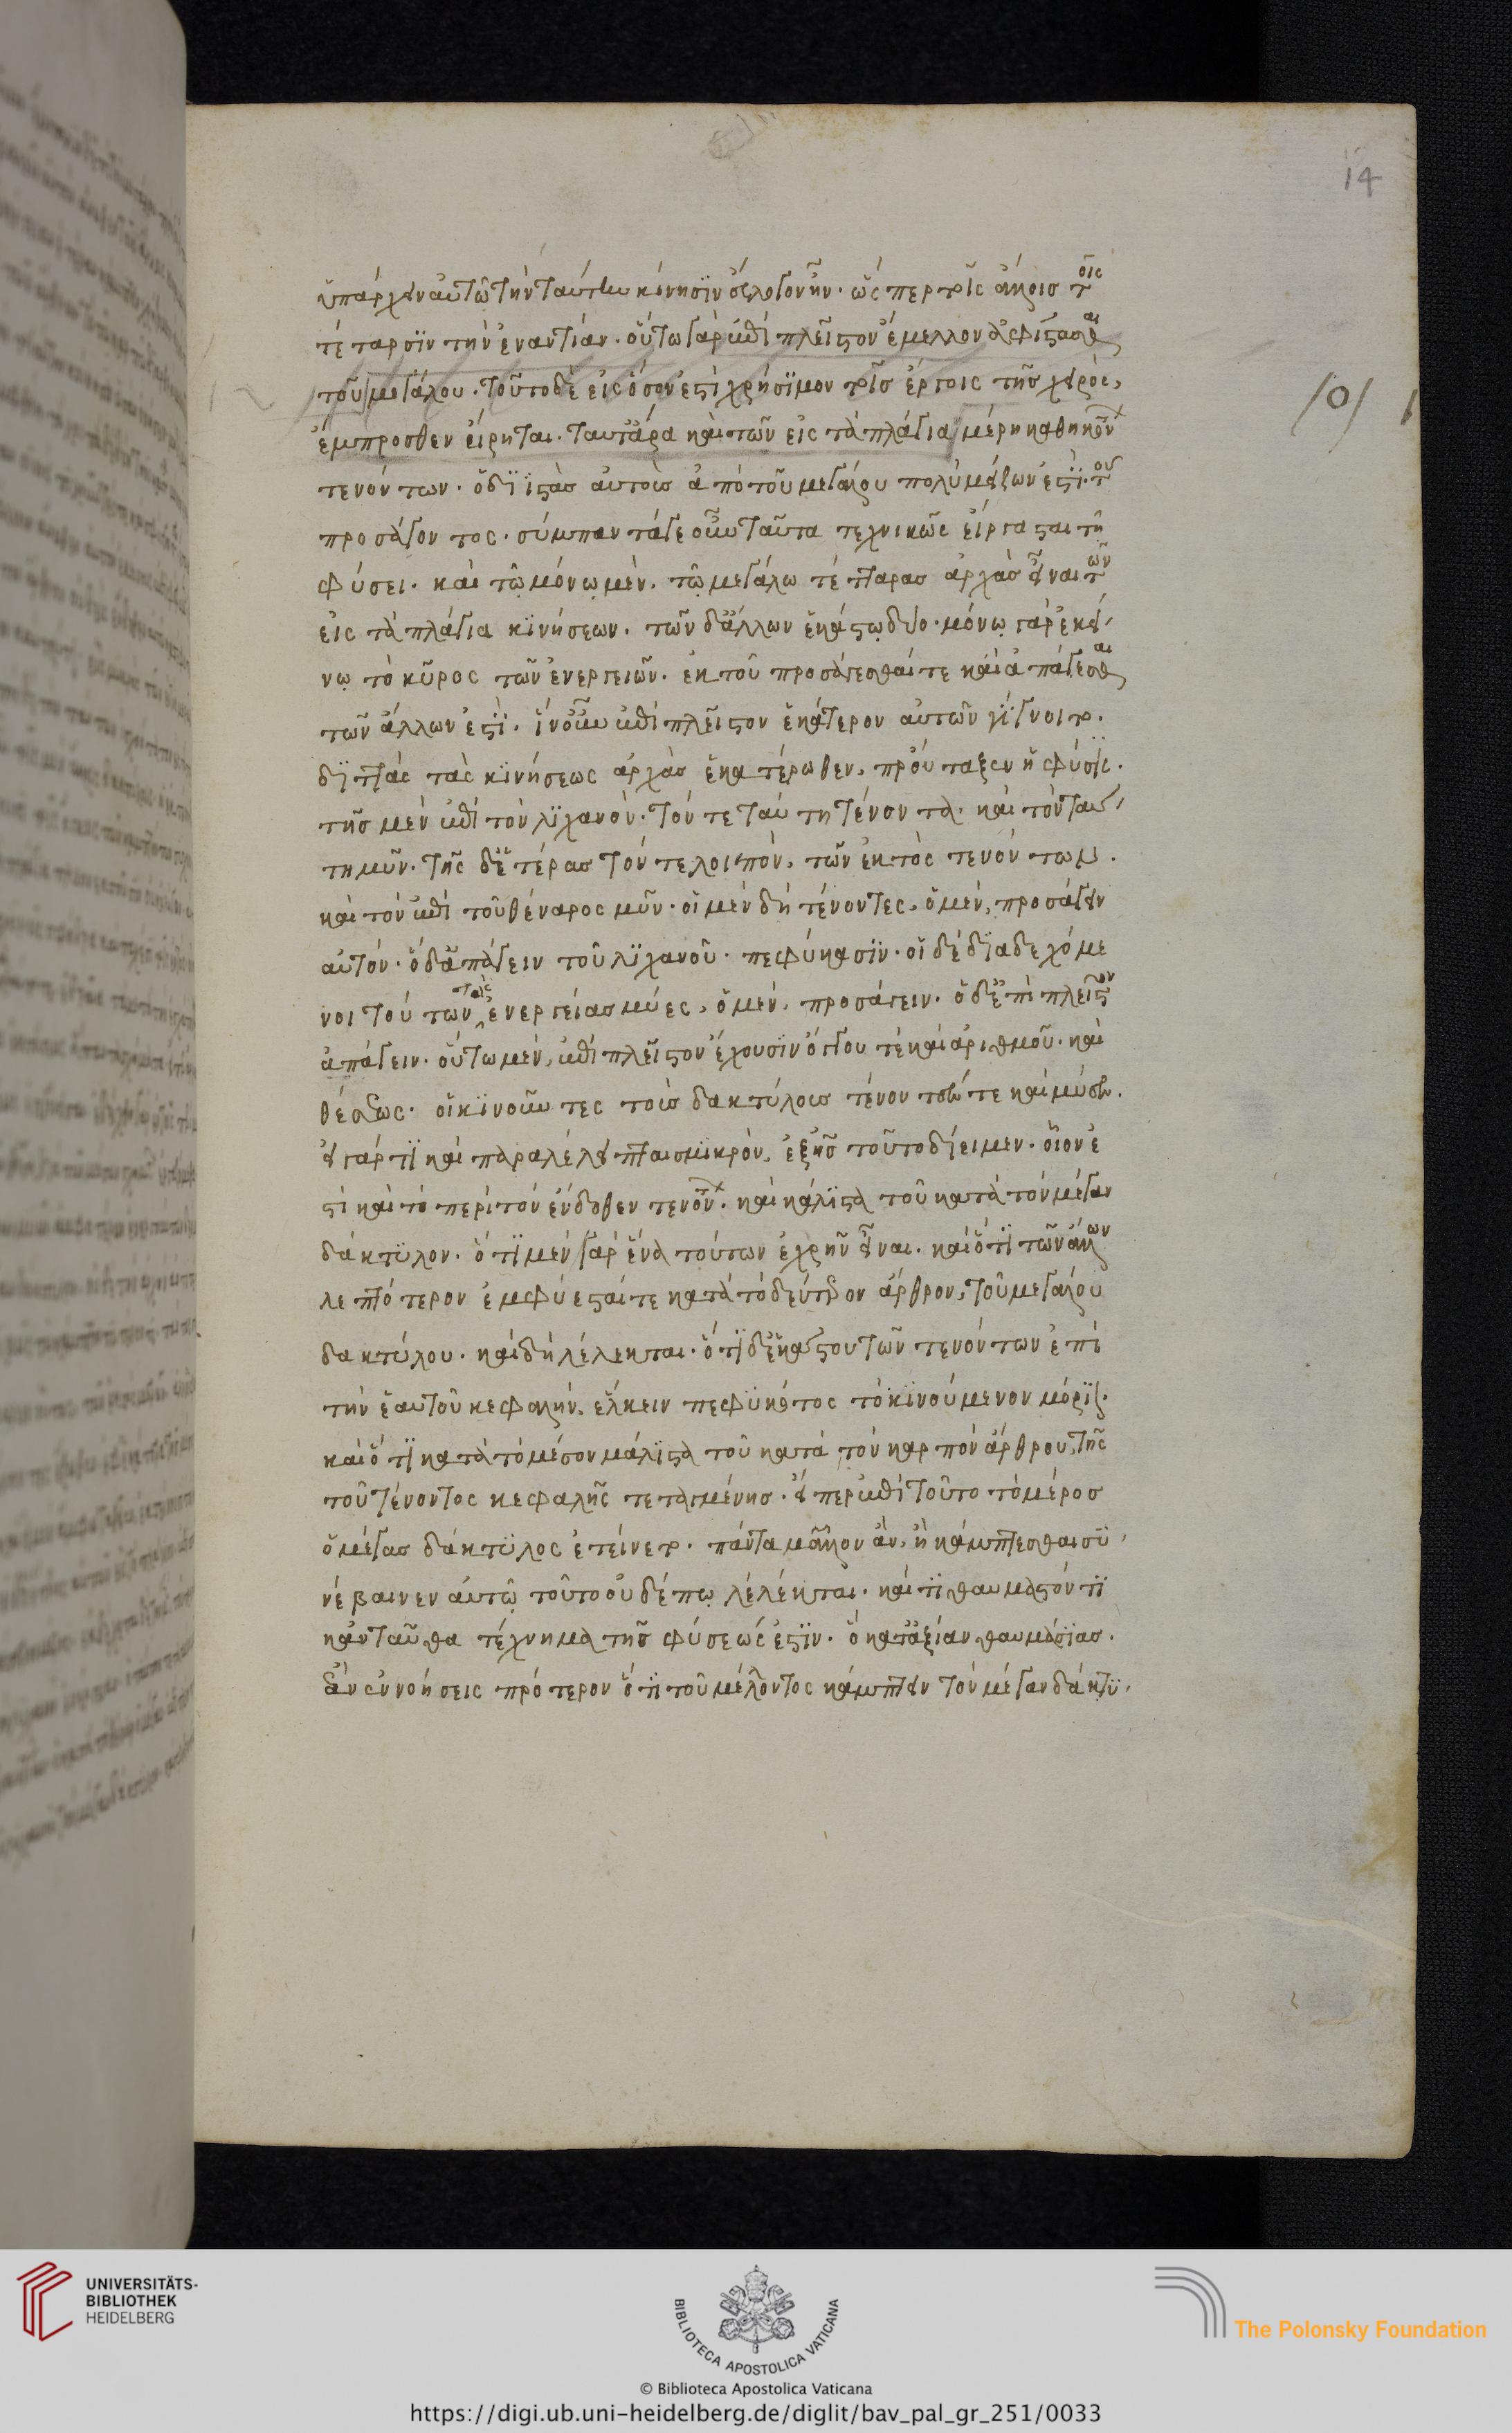 14
ὑπάρχειν αὐτῷ τὴν ταύτην κίνησϊν εὔλογον ἦν· ὥσπερ τοῖς ἄλλοις τοῖς
τέταρσϊν τὴν ἐναντίαν· οὕτω γὰρ ἐπὶ πλεῖστον ἔμελλον ἀφίστασθαι
τοῦ μεγάλου· τοῦτο δὲ εἰς ὅσον ἐστὶ χρήσϊμον τοῖς ἔργοις τῆς χειρὸς,
ἔμπροσθεν εἴρηται· ταῦτ' ἄρα καὶ τῶν εἰς τὰ πλάγια μέρη καθηκόντων
τενόντων· ὁ διϊστὰς αὐτοὺς ἀπὸ τοῦ μεγάλου πολὺ μείζων ἐστὶ· τοῦ
προσάγοντος· σύμπαντά γε οὖν ταῦτα τεχνικῶς εἴργασται τῇ
φύσει· καὶ τῷ μόνῳ μὲν, τῷ μεγάλῳ τέτταρας ἀρχὰς εἶναι τῶν
εἰς τὰ πλάγια κϊνήσεων· τῶν δ' ἄλλων ἑκάστῳ δύο· μόνῳ γὰρ ἐκεί
νῳ τὸ κῦρος τῶν ἐνεργειῶν· ἐκ τοῦ προσάγεσθαί τε καὶ ἀπάγεσθαι
τῶν ἄλλων ἐστὶ· ἵν' οὖν ἐπὶ πλεῖστον ἑκάτερον αὐτῶν γίγνοιτο·
διττὰς τὰς κϊνήσεως ἀρχὰς ἑκατέρωθεν, προὔταξεν ἡ φύσϊς·
τῆς μὲν ἐπὶ τὸν λϊχανὸν· τόν τε ταύτῃ τένοντα· καὶ τὸν ταύ
τῃ μῦν· τῆς δ' ἑτέρας τόν τε λοιπὸν, τῶν ἐκτὸς τενόντων·
καὶ τὸν ἐπὶ τοῦ θέναρος μῦν· οἱ μὲν δὴ τένοντες, ὁ μὲν, προσάγειν
αὐτόν· ὁ δ' ἀπάγειν τοῦ λϊχανοῦ· πεφύκασϊν· οἱ δὲ δϊαδεχόμε
νοι τούτων τὰς ἐνεργείας μύες, ὁ μὲν, προσάγειν· ὁ δ' ἐπὶ πλεῖστον
ἀπάγειν· οὕτω μὲν, ἐπὶ πλεῖστον ἔχουσϊν ὄγκου τὲ καὶ ἀριθμοῦ· καὶ
θέσεως· οἱ κϊνοῦντες τοὺς δακτύλους τένοντές τε καὶ μύες·
εἰ γάρ τϊ καὶ παραλέλειπται σμικρὸν, ἐξῆς τοῦτο δίειμεν· οἷον ἐ
στὶ καὶ τὸ περὶ τὸν ἔνδοθεν τενόντων· καὶ μάλϊστα τοῦ κατὰ τὸν μέγαν
δάκτϋλον· ὅτϊ μὲν γὰρ ἕνα τούτων ἐχρῆν εἶναι· καὶ ὅτϊ τῶν ἄλλων
λεπτότερον ἐμφύεσταί τε κατὰ τὸ δεύτερον ἄρθρον, τοῦ μεγάλου
δακτύλου· καὶ δὴ λέλεκται· ὅτϊ δ' ἑκάστου τῶν τενόντων ἐπὶ
τὴν ἑαυτοῦ κεφαλὴν, ἕλκειν πεφυκότος τὸ κϊνούμενον μόριον·
καὶ ὅτϊ κατὰ τὸ μέσον μάλϊστα τοῦ κατὰ τὸν καρπὸν ἄρθρου, τῆς
τοῦ τένοντος κεφαλῆς τεταγμένης· εἴπερ ἐπὶ τοῦτο τὸ μέρος
ὁ μέγας δάκτϋλος ἐτείνετο· πάντα μᾶλλον ἂν, ἢ κάμπτεσθαι συ
νέβαινεν αὐτῷ τοῦτο οὐδέπω λέλεκται· καί τϊ θαυμαστόν τϊ
κἀνταῦθα τέχνημα τῆς φύσεώς ἐστϊν· ὁ κατ' ἀξίαν θαυμάσϊας·
ἂν ἐννοήσεις πρότερον ὅτϊ τοῦ μέλλοντος κάμπτειν τὸν μέγαν δάκτϋ
UNIVERSITÄTS-
BIBLIOTHEK
HEIDELBERG
BIBLIOTECA APOSTOLICA VATICANA
The Polonsky Foundation
© Biblioteca Apostolica Vaticana
https://digi.ub.uni-heidelberg.de/diglit/bav_pal_gr_251/0033